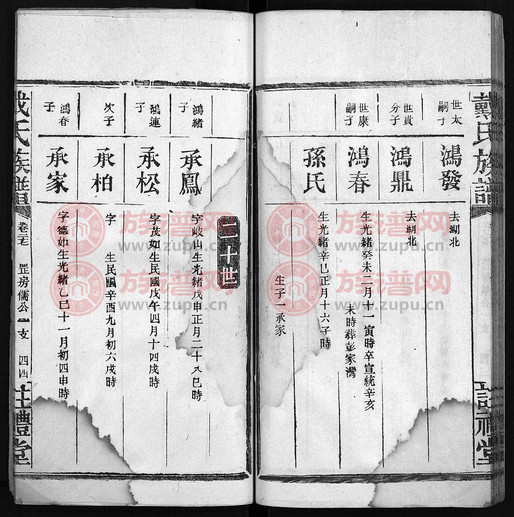 戴氏族譜
世太
嗣子
鴻發
去湖北
世貴
分子
鴻鼎
去湖北
世康
嗣子
鴻春
生光緒癸未二月十一寅時辛宣統辛亥
未時葬彭家灣
孫氏
生光緒辛巳正月十六子時
生子一承家
二十世
鴻緒
子
承鳳
字岐山生光緒戊申正月二十八巳時
鴻連
子
承松
字茂如生民國戊午四月十四戌時
次子
承柏
字
生民國辛酉九月初六戌時
鴻春
子
承家
字德如生光緒乙巳十一月初四申時
戴氏族譜
罡房儒公
支
四四
注禮堂
族谱网
www.zupu.cn